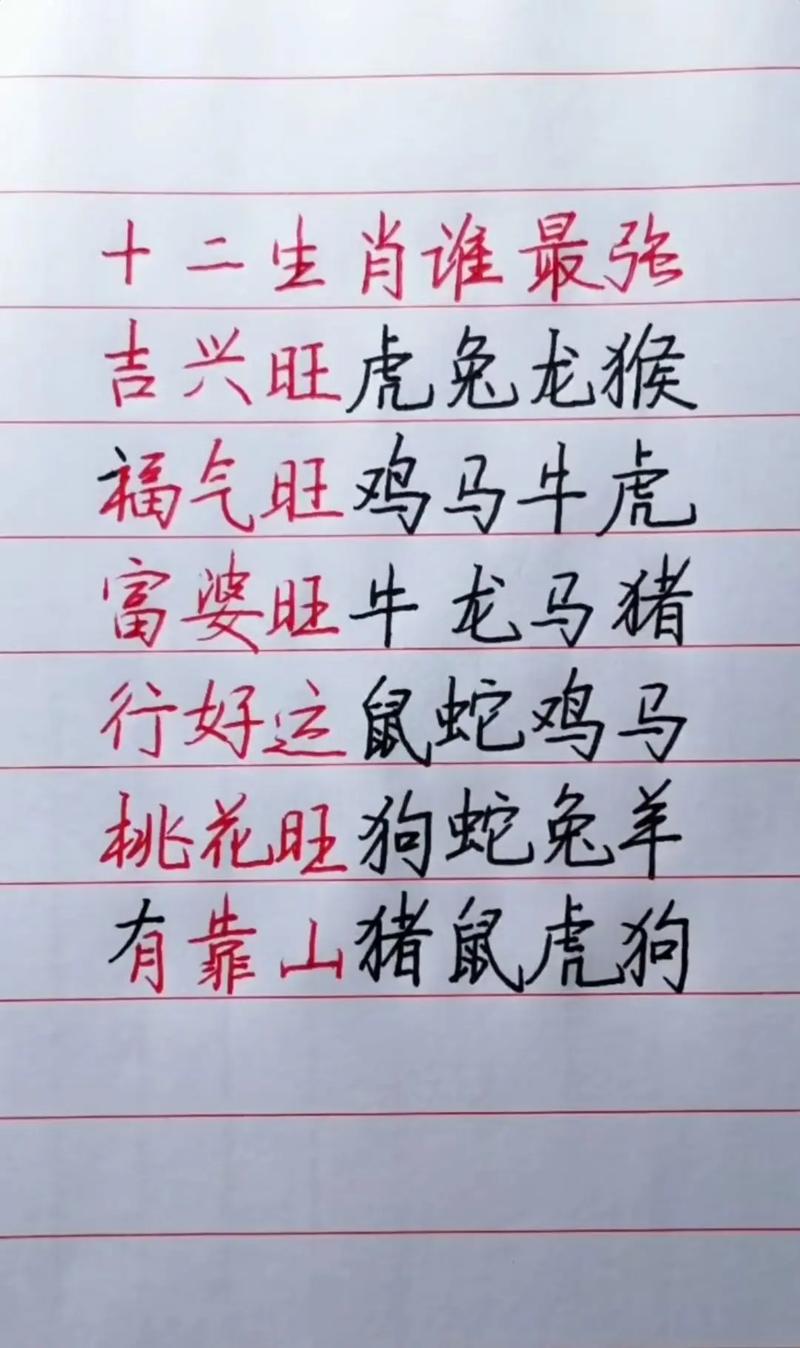 十二生肖谁最强
吉兴旺虎兔龙猴
福气旺鸡马牛虎
富婆旺牛龙马猪
行好运鼠蛇鸡马
桃花旺狗蛇兔羊
有靠山猪鼠虎狗